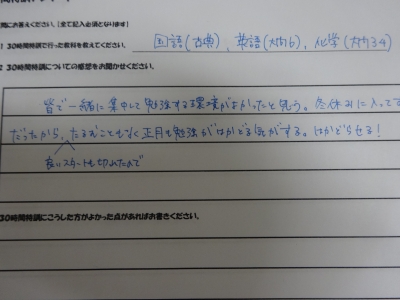 問にお答えください。(全て記入必須となります)
1 30時間特訓で行った教科を教えてください。 国語(古典)、英語(大問6)、化学(大問34)
2 30時間特訓についての感想をお聞かせください。
皆で一緒に集中して勉強する環境がよかったと思う。冬休みに入ってす
だったから、たるむこともなく正月も勉強がはかどる気がする。はかどらせる!
良いスタートも切れたので
30時間特訓にこうした方がよかった点があればお書きください。